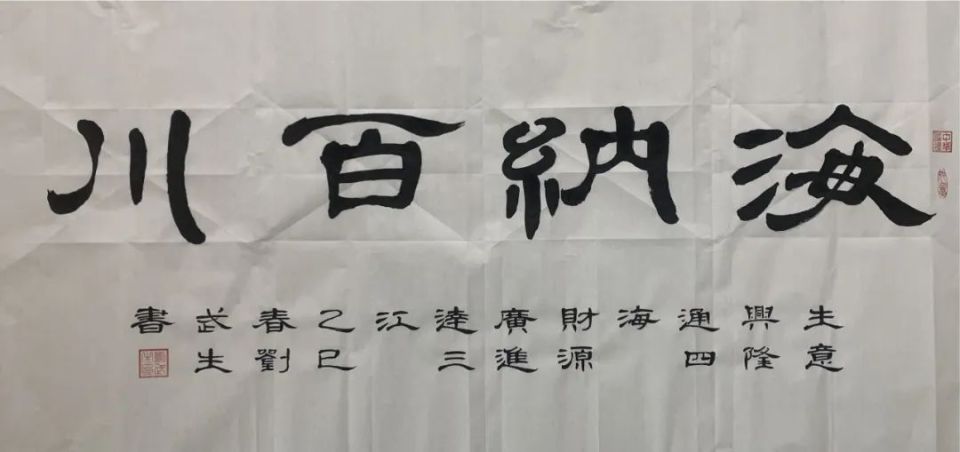 海納百川
生意
興隆
通四
海
財源
廣進
達三
江
乙巳
春劉
武生
書